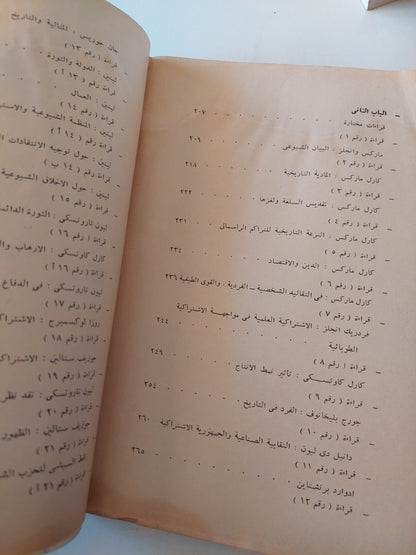 ـ الباب الثانى
قراءات مختارة . . . . . . ٢٠٧
ـ قراءة ( رقم ١ )
ماركس وانجلز : البيان الشيوعى . . . ٢٠٩
ـ قراءة ( رقم ٢ )
كارل ماركس : المادية التاريخية . . . ٢١٨
ـ قراءة ( رقم ٣ )
كارل ماركس : تقديس السلعة ولغزها . . . ٢٢٢
ـ قراءة ( رقم ٤ )
كارل ماركس : النزعة التاريخية للتراكم الراسمالى ٢٣١
ـ قراءة ( رقم ٥ )
كارل ماركس : الدين والاقتصاد . . . ٢٣٤
ـ قراءة ( رقم ٦ )
كارل ماركس : فى التقاليد الشخصية – الفردية . والقوى الطبقية ٢٣٦
ـ قراءة ( رقم ٧ )
فردريك انجلز : الاشتراكية العلمية فى مواجهة الاشتراكية
الطوبائية . . . . . . ٢٤٤
ـ قراءة ( رقم ٨ )
كارل كاوتسكى : تأثير نمط الانتاج . . . ٢٤٩
ـ قراءة ( رقم ٩ )
جورج بليخانوف : الفرد فى التاريخ . . . ٢٥٤
ـ قراءة ( رقم ١٠ )
دانيل دى ليون : النقابية الصناعية والجمهورية الاشتراكية ٢٦٠
ـ قراءة ( رقم ١١ )
ادوارد برنشتاين . . . . . . ٢٦٥
ـ قراءة ( رقم ١٢ )
جان جوريس : المثالية والتاريخ
ـ قراءة ( رقم ١٣ )
لينين : الدولة والثورة
ـ قراءة ( رقم ١٣ أ )
لينين : العمال
ـ قراءة ( رقم ١٤ )
لينين : المنظمة الشيوعية والاستر
ـ قراءة ( رقم ١٤ أ )
لينين : حول توجيه الانتقادات
ـ قراءة ( رقم ١٤ ب )
لينين : حول الاخلاق الشيوعية
ـ قراءة ( رقم ١٥ )
ليون تاروتسكى : الثورة الدائمة
ـ قراءة ( رقم ١٦ )
كارل كاوتسكى : الارهاب وال
ـ قراءة ( رقم ١٦ أ )
ليون تاروتسكى : فى الدفاع
ـ قراءة ( رقم ١٧ )
روزا لوكسمبرج : الاشتراك
ـ قراءة ( رقم ١٨ )
جوزيف ستالين : الاشتراكي
ـ قراءة ( رقم ١٩ )
ليون تاروتسكى : نقد نظر
ـ قراءة ( رقم ٢٠ )
جوزيف ستالين : الظهور
ـ قراءة ( رقم ٢١ )
السياسى للحزب الش
ـ قراءة ( رقم ٢١ أ )